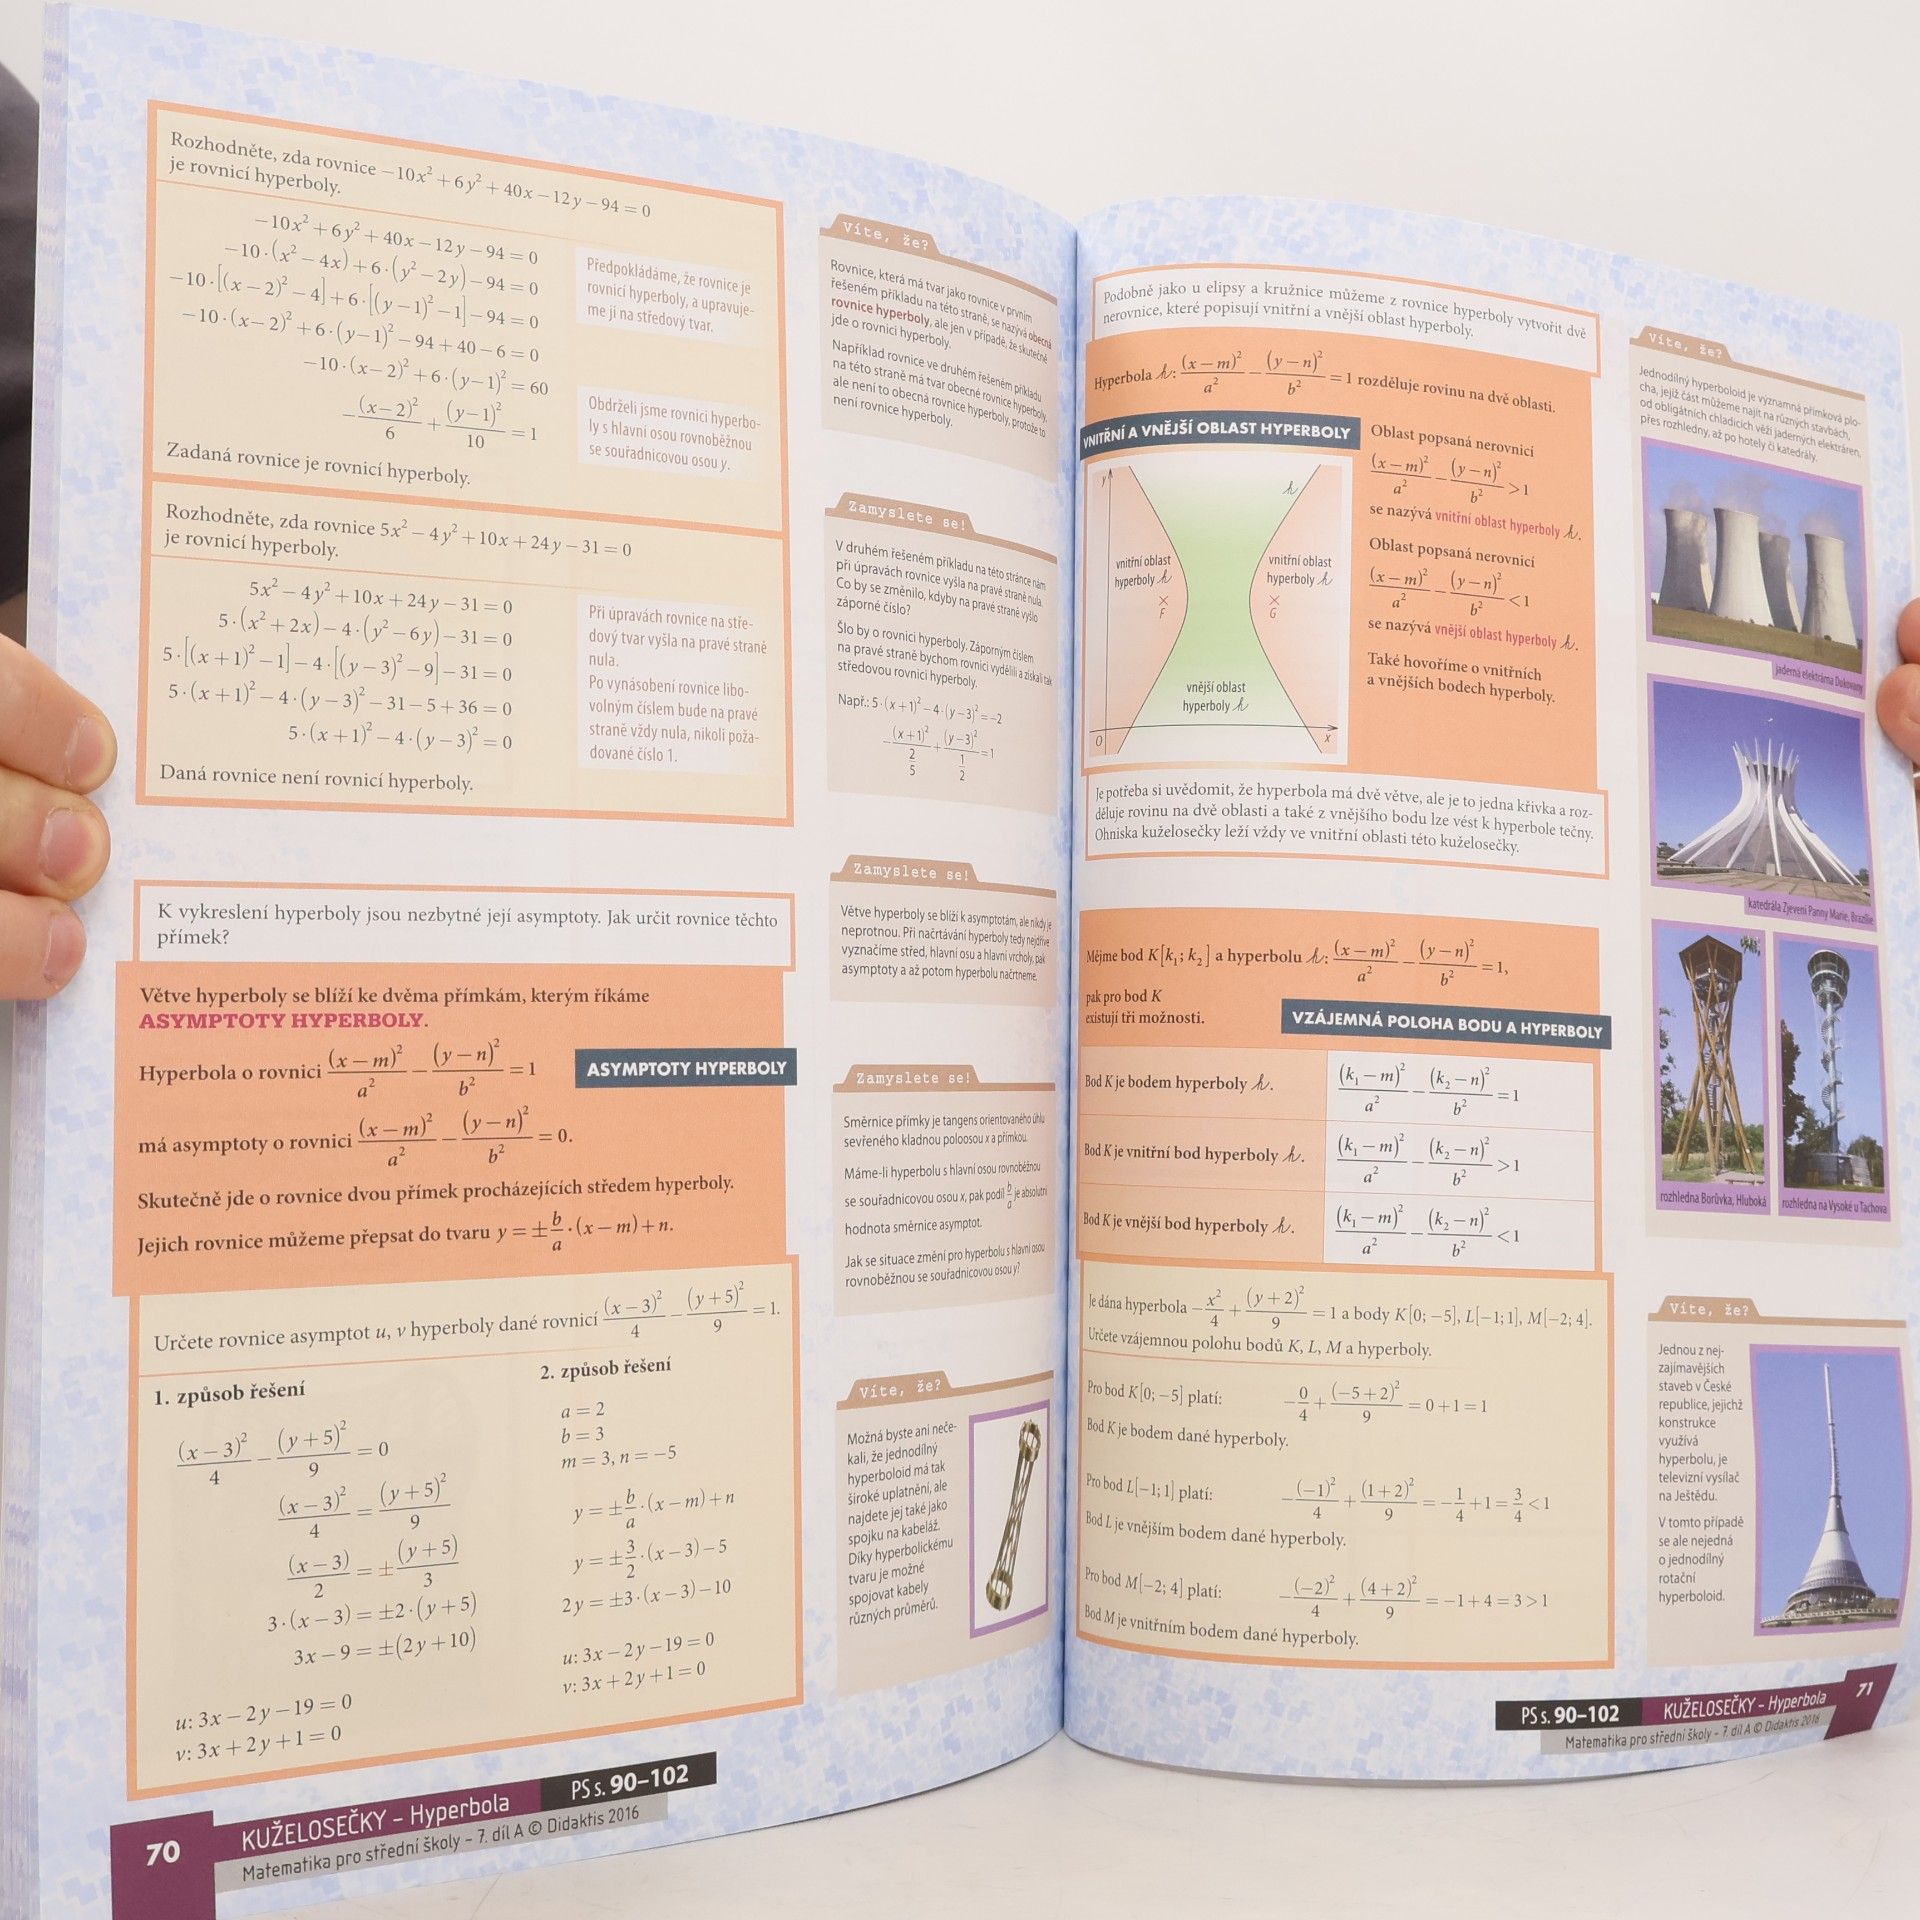 Rozhodněte, zda rovnice −10x² + 6y² + 40x − 12y − 94 = 0
je rovnicí hyperboly.
−10x² + 6y² + 40x − 12y − 94 = 0
−10·(x² − 4x) + 6·(y² − 2y) − 94 = 0
−10·[(x − 2)² − 4] + 6·[(y − 1)² − 1] − 94 = 0
−10·(x − 2)² + 6·(y − 1)² − 94 + 40 − 6 = 0
−10·(x − 2)² + 6·(y − 1)² = 60
−(x − 2)²/6 + (y − 1)²/10 = 1
Předpokládáme, že rovnice je
rovnicí hyperboly, a upravuje-
me ji na středový tvar.
Obdrželi jsme rovnici hyperbo-
ly s hlavní osou rovnoběžnou
se souřadnicovou osou y.
Zadaná rovnice je rovnicí hyperboly.
Rozhodněte, zda rovnice 5x² − 4y² + 10x + 24y − 31 = 0
je rovnicí hyperboly.
5x² − 4y² + 10x + 24y − 31 = 0
5·(x² + 2x) − 4·(y² − 6y) − 31 = 0
5·[(x + 1)² − 1] − 4·[(y − 3)² − 9] − 31 = 0
5·(x + 1)² − 4·(y − 3)² − 31 − 5 + 36 = 0
5·(x + 1)² − 4·(y − 3)² = 0
Při úpravách rovnice na stře-
dový tvar vyšla na pravé straně
nula.
Po vynásobení rovnice libo-
volným číslem bude na pravé
straně vždy nula, nikoli poža-
dované číslo 1.
Daná rovnice není rovnicí hyperboly.
K vykreslení hyperboly jsou nezbytné její asymptoty. Jak určit rovnice těchto
přímek?
Větve hyperboly se blíží ke dvěma přímkám, kterým říkáme
ASYMPTOTY HYPERBOLY.
ASYMPTOTY HYPERBOLY
Hyperbola o rovnici (x − m)²/a² − (y − n)²/b² = 1
má asymptoty o rovnici (x − m)²/a² − (y − n)²/b² = 0.
Skutečně jde o rovnice dvou přímek procházejících středem hyperboly.
Jejich rovnice můžeme přepsat do tvaru y = ± b/a · (x − m) + n.
Určete rovnice asymptot u, v hyperboly dané rovnicí (x − 3)²/4 − (y + 5)²/9 = 1.
1. způsob řešení
(x − 3)²/4 − (y + 5)²/9 = 0
(x − 3)²/4 = (y + 5)²/9
(x − 3)/2 = ± (y + 5)/3
3·(x − 3) = ±2·(y + 5)
3x − 9 = ±(2y + 10)
u: 3x − 2y − 19 = 0
v: 3x + 2y + 1 = 0
2. způsob řešení
a = 2
b = 3
m = 3, n = −5
y = ± b/a · (x − m) + n
y = ± 3/2 · (x − 3) − 5
2y = ±3·(x − 3) − 10
u: 3x − 2y − 19 = 0
v: 3x + 2y + 1 = 0
Víte, že?
Rovnice, která má tvar jako rovnice v prvním
řešeném příkladu na této straně, se nazývá obecná
rovnice hyperboly, ale jen v případě, že skutečně
jde o rovnici hyperboly.
Například rovnice ve druhém řešeném příkladu
na této straně má tvar obecné rovnice hyperboly,
ale není to obecná rovnice hyperboly, protože to
není rovnice hyperboly.
Zamyslete se!
V druhém řešeném příkladu na této stránce nám
při úpravách rovnice vyšla na pravé straně nula.
Co by se změnilo, kdyby na pravé straně vyšlo
záporné číslo?
Šlo by o rovnici hyperboly. Záporným číslem
na pravé straně bychom rovnici vydělili a získali tak
středovou rovnici hyperboly.
Např.: 5·(x + 1)² − 4·(y − 3)² = −2
−(x + 1)²/(2/5) + (y − 3)²/(1/2) = 1
Zamyslete se!
Větve hyperboly se blíží k asymptotám, ale nikdy je
neprotnou. Při načrtávání hyperboly tedy nejdříve
vyznačíme střed, hlavní osu a hlavní vrcholy, pak
asymptoty a až potom hyperbolu načrtneme.
Zamyslete se!
Směrnice přímky je tangens orientovaného úhlu
sevřeného kladnou poloosou x a přímkou.
Máme-li hyperbolu s hlavní osou rovnoběžnou
se souřadnicovou osou x, pak podíl b/a je absolutní
hodnota směrnice asymptot.
Jak se situace změní pro hyperbolu s hlavní osou
rovnoběžnou se souřadnicovou osou y?
Víte, že?
Možná byste ani neče-
kali, že jednodílný
hyperboloid má tak
široké uplatnění, ale
najdete jej také jako
spojku na kabeláž.
Díky hyperbolickému
tvaru je možné
spojovat kabely
různých průměrů.
70
KUŽELOSEČKY – Hyperbola
PS s. 90–102
Matematika pro střední školy – 7. díl A © Didaktis 2016
Podobně jako u elipsy a kružnice můžeme z rovnice hyperboly vytvořit dvě
nerovnice, které popisují vnitřní a vnější oblast hyperboly.
Hyperbola h: (x − m)²/a² − (y − n)²/b² = 1 rozděluje rovinu na dvě oblasti.
VNITŘNÍ A VNĚJŠÍ OBLAST HYPERBOLY
y
h
vnitřní oblast
hyperboly h
F
vnitřní oblast
hyperboly h
G
vnější oblast
hyperboly h
O
x
Oblast popsaná nerovnicí
(x − m)²/a² − (y − n)²/b² > 1
se nazývá vnitřní oblast hyperboly h.
Oblast popsaná nerovnicí
(x − m)²/a² − (y − n)²/b² < 1
se nazývá vnější oblast hyperboly h.
Také hovoříme o vnitřních
a vnějších bodech hyperboly.
Je potřeba si uvědomit, že hyperbola má dvě větve, ale je to jedna křivka a roz-
děluje rovinu na dvě oblasti a také z vnějšího bodu lze vést k hyperbole tečny.
Ohniska kuželosečky leží vždy ve vnitřní oblasti této kuželosečky.
Mějme bod K[k₁; k₂] a hyperbolu h: (x − m)²/a² − (y − n)²/b² = 1,
pak pro bod K
existují tři možnosti.
VZÁJEMNÁ POLOHA BODU A HYPERBOLY
Bod K je bodem hyperboly h. (k₁ − m)²/a² − (k₂ − n)²/b² = 1
Bod K je vnitřní bod hyperboly h. (k₁ − m)²/a² − (k₂ − n)²/b² > 1
Bod K je vnější bod hyperboly h. (k₁ − m)²/a² − (k₂ − n)²/b² < 1
Je dána hyperbola −x²/4 + (y + 2)²/9 = 1 a body K[0; −5], L[−1; 1], M[−2; 4].
Určete vzájemnou polohu bodů K, L, M a hyperboly.
Pro bod K[0; −5] platí: −0/4 + (−5 + 2)²/9 = 0 + 1 = 1
Bod K je bodem dané hyperboly.
Pro bod L[−1; 1] platí: −(−1)²/4 + (1 + 2)²/9 = −1/4 + 1 = 3/4 < 1
Bod L je vnějším bodem dané hyperboly.
Pro bod M[−2; 4] platí: −(−2)²/4 + (4 + 2)²/9 = −1 + 4 = 3 > 1
Bod M je vnitřním bodem dané hyperboly.
Víte, že?
Jednodílný hyperboloid je významná přímková plo-
cha, jejíž část můžeme najít na různých stavbách,
od obligátních chladicích věží jaderných elektráren,
přes rozhledny, až po hotely či katedrály.
jaderná elektrárna Dukovany
katedrála Zjevení Panny Marie, Brazílie
rozhledna Borůvka, Hluboká
rozhledna na Vysoké u Tachova
Víte, že?
Jednou z nej-
zajímavějších
staveb v České
republice, jejichž
konstrukce
využívá
hyperbolu, je
televizní vysílač
na Ještědu.
V tomto případě
se ale nejedná
o jednodílný
rotační
hyperboloid.
PS s. 90–102
KUŽELOSEČKY – Hyperbola
71
Matematika pro střední školy – 7. díl A © Didaktis 2016